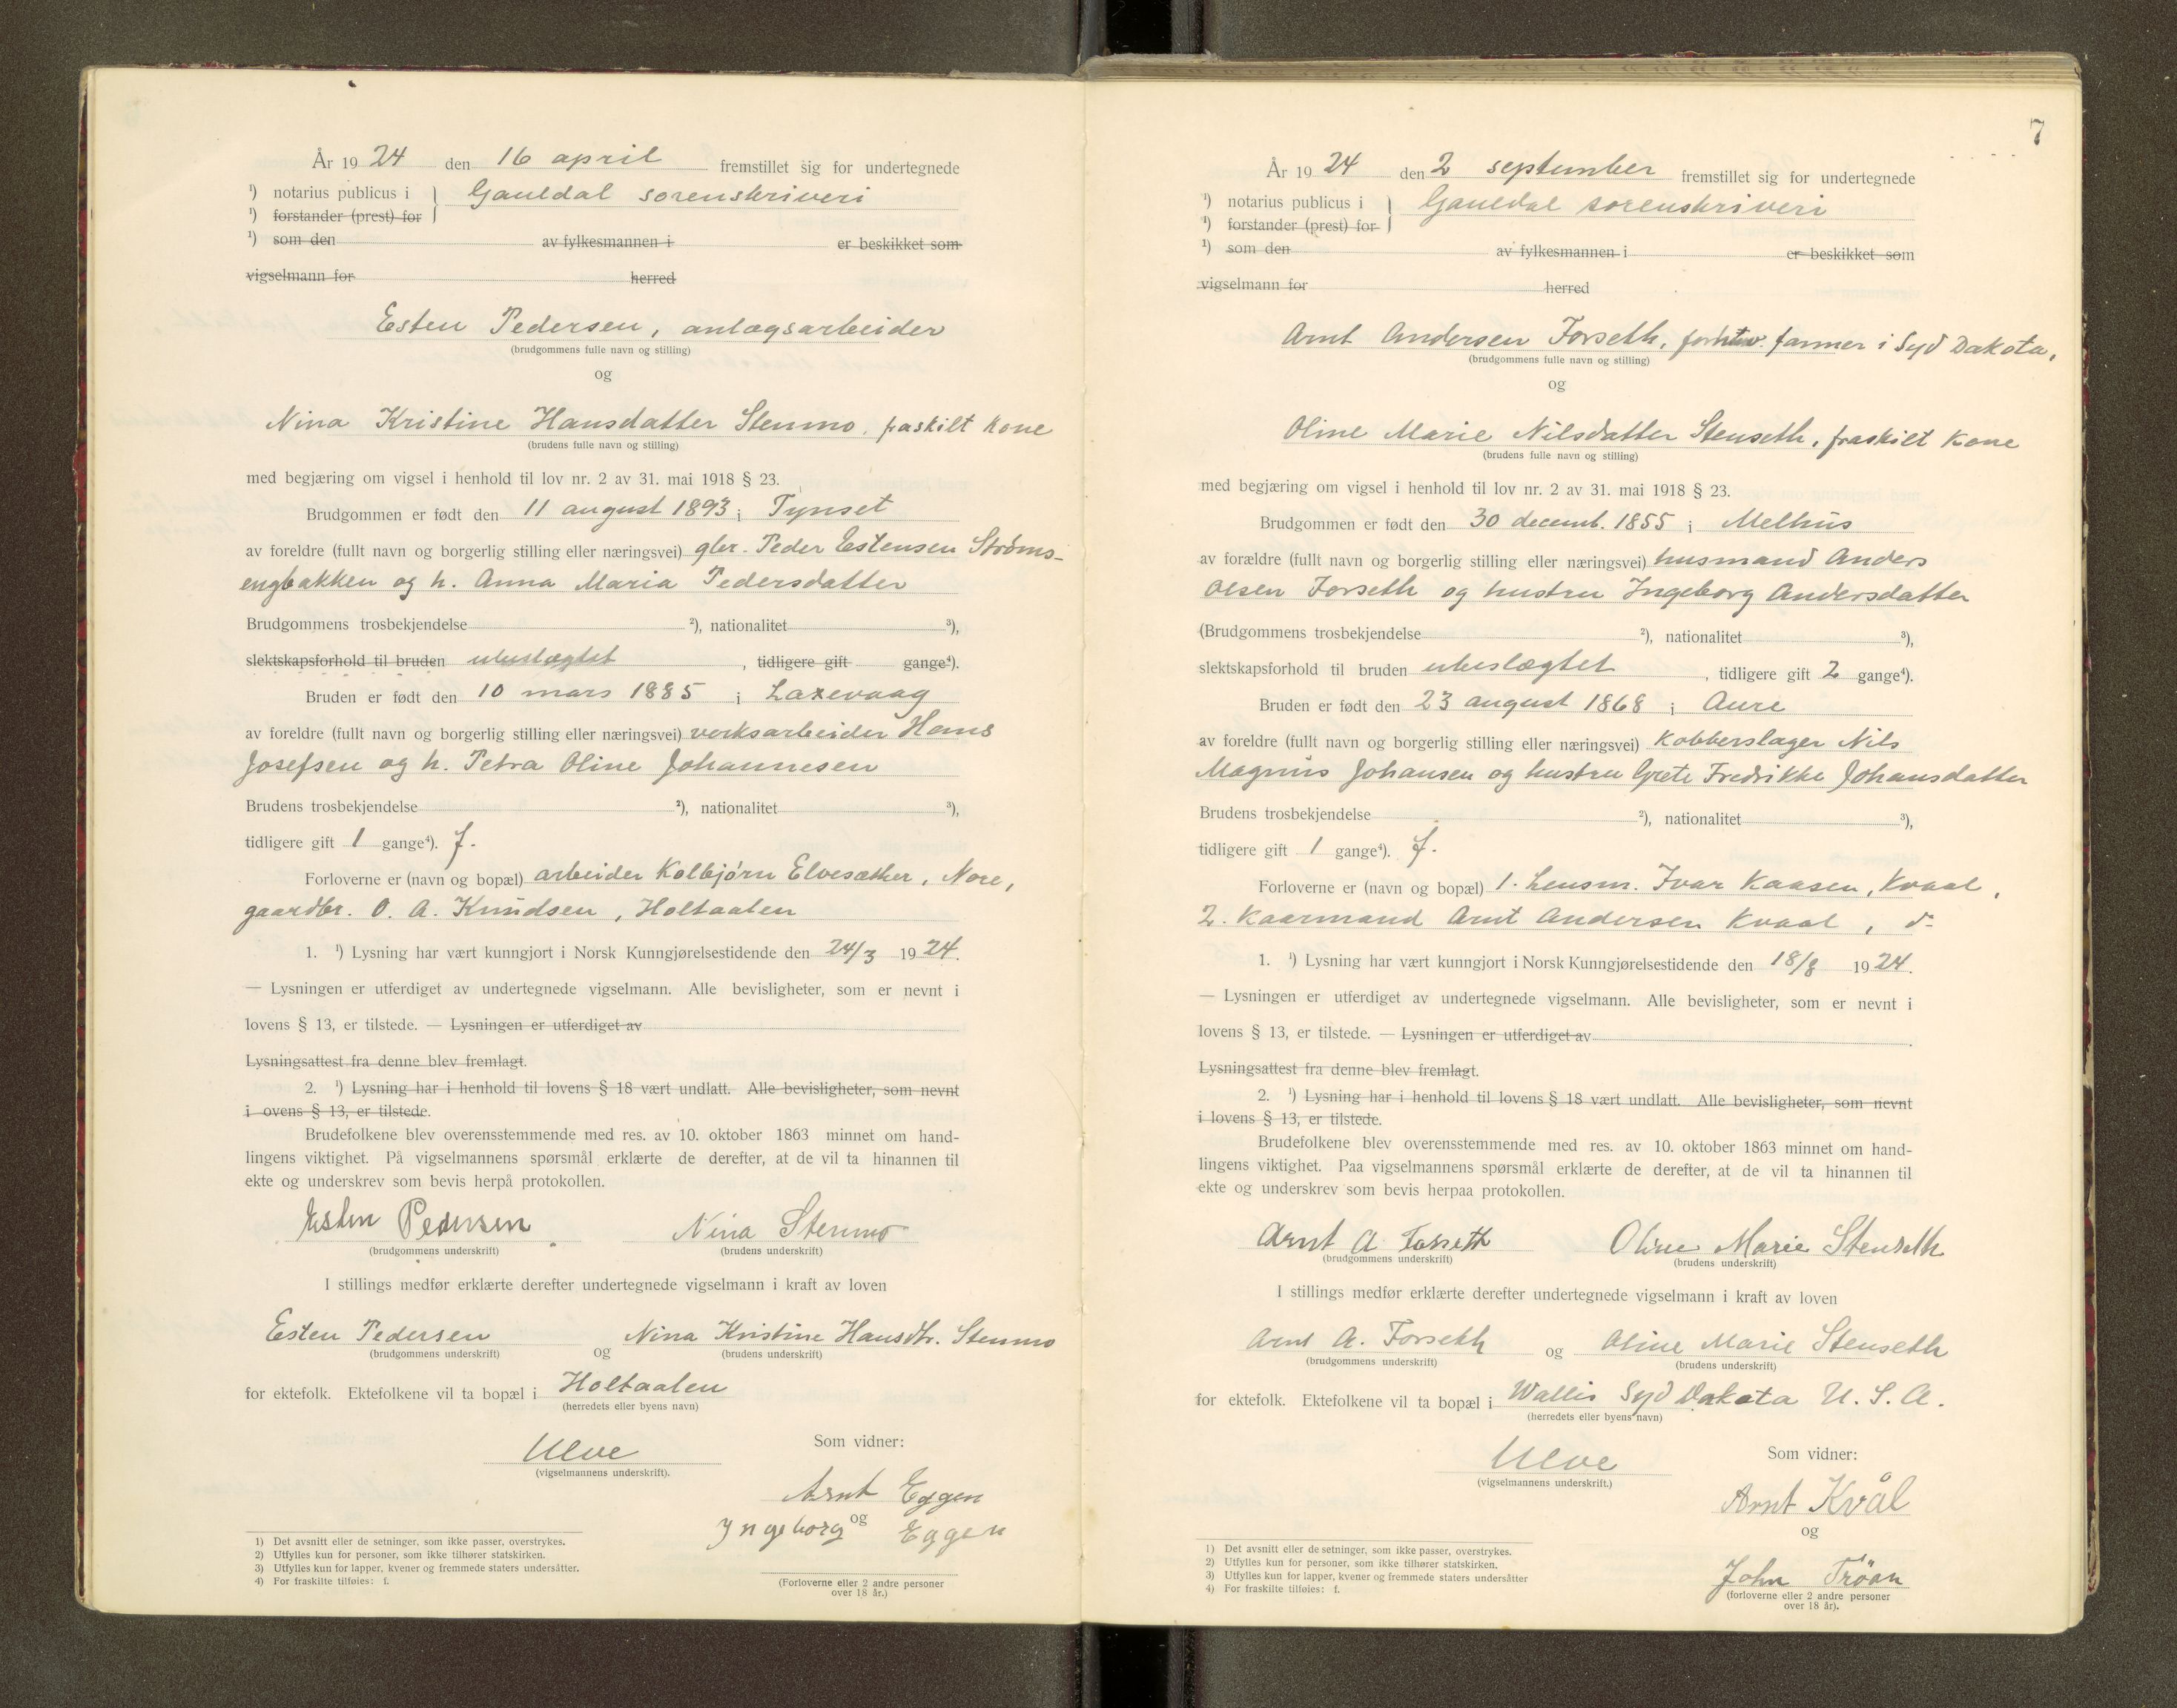 År 1924 den 16 april fremstillet sig for undertegnede
¹) notarius publicus i } Gauldal sorenskriveri
¹) forstander (prest) for
¹) som den av fylkesmannen i er beskikket som
vigselmann for herred
Esten Pedersen, anlægsarbeider
(brudgommens fulle navn og stilling)
og
Nina Kristine Hansdatter Stenmo, fraskilt kone
(brudens fulle navn og stilling)
med begjæring om vigsel i henhold til lov nr. 2 av 31. mai 1918 § 23.
Brudgommen er født den 11 august 1893 i Tynset
av foreldre (fullt navn og borgerlig stilling eller næringsvei) gbr. Peder Estensen Strøms-
engbakken og h. Anna Maria Pedersdatter
Brudgommens trosbekjendelse ²), nationalitet ³),
slektskapsforhold til bruden ubeslægtet, tidligere gift gange⁴).
Bruden er født den 10 mars 1885 i Laxevaag
av foreldre (fullt navn og borgerlig stilling eller næringsvei) verksarbeider Hans
Josefsen og h. Petra Oline Johannesen
Brudens trosbekjendelse ²), nationalitet ³),
tidligere gift 1 gange⁴). f.
Forloverne er (navn og bopæl) arbeider Kolbjørn Elvesæther, Nore,
gaardbr. O. A. Knudsen, Holtaalen
1. ¹) Lysning har vært kunngjort i Norsk Kunngjørelsestidende den 24/3 1924.
— Lysningen er utferdiget av undertegnede vigselmann. Alle bevisligheter, som er nevnt i
lovens § 13, er tilstede. — Lysningen er utferdiget av
Lysningsattest fra denne blev fremlagt.
2. ¹) Lysning har i henhold til lovens § 18 vært undlatt. Alle bevisligheter, som nevnt
i ovens § 13, er tilstede.
Brudefolkene blev overensstemmende med res. av 10. oktober 1863 minnet om hand-
lingens viktighet. På vigselmannens spørsmål erklærte de derefter, at de vil ta hinannen til
ekte og underskrev som bevis herpå protokollen.
Esten Pedersen Nina Stenmo
(brudgommens underskrift) (brudens underskrift)
I stillings medfør erklærte derefter undertegnede vigselmann i kraft av loven
Esten Pedersen og Nina Kristine Hansdtr. Stenmo
(brudgommens underskrift) (brudens underskrift)
for ektefolk. Ektefolkene vil ta bopæl i Holtaalen
(herredets eller byens navn)
Ulve
(vigselmannens underskrift).
Som vidner:
Arnt Eggen
og
Ingeborg Eggen
(Forloverne eller 2 andre personer
over 18 år.)
1) Det avsnitt eller de setninger, som ikke passer, overstrykes.
2) Utfylles kun for personer, som ikke tilhører statskirken.
3) Utfylles kun for lapper, kvener og fremmede staters undersåtter.
4) For fraskilte tilføies: f.
7
År 1924 den 2 september fremstillet sig for undertegnede
¹) notarius publicus i } Gauldal sorenskriveri
¹) forstander (prest) for
¹) som den av fylkesmannen i er beskikket som
vigselmann for herred
Arnt Andersen Forseth, farmer i Syd Dakota,
(brudgommens fulle navn og stilling)
og
Oline Marie Nilsdatter Stenseth, fraskilt kone
(brudens fulle navn og stilling)
med begjæring om vigsel i henhold til lov nr. 2 av 31. mai 1918 § 23.
Brudgommen er født den 30 decemb. 1855 i Melhus
av forældre (fullt navn og borgerlig stilling eller næringsvei) husmand Anders
Olsen Forseth og hustru Ingeborg Andersdatter
(Brudgommens trosbekjendelse ²), nationalitet ³),
slektskapsforhold til bruden ubeslægtet, tidligere gift 2 gange⁴).
Bruden er født den 23 august 1868 i Aure
av foreldre (fullt navn og borgerlig stilling eller næringsvei) kobberslager Nils
Magnus Johansen og hustru Grete Fredrikke Johansdatter
Brudens trosbekjendelse ²), nationalitet ³),
tidligere gift 1 gange⁴). f.
Forloverne er (navn og bopæl) 1. Lensm. Ivar Kaasen, Kvaal,
2. Kaarmand Arnt Andersen Kvaal,
1. ¹) Lysning har vært kunngjort i Norsk Kunngjørelsestidende den 18/8 1924.
— Lysningen er utferdiget av undertegnede vigselmann. Alle bevisligheter, som er nevnt i
lovens § 13, er tilstede. — Lysningen er utferdiget av .
Lysningsattest fra denne blev fremlagt.
2. ¹) Lysning har i henhold til lovens § 18 vært undlatt. Alle bevisligheter, som nevnt
i lovens § 13, er tilstede.
Brudefolkene blev overensstemmende med res. av 10. oktober 1863 minnet om hand-
lingens viktighet. Paa vigselmannens spørsmål erklærte de derefter, at de vil ta hinannen til
ekte og underskrev som bevis herpaa protokollen.
Arnt A Forseth Oline Marie Stenseth
(brudgommens underskrift) (brudens underskrift)
I stillings medfør erklærte derefter undertegnede vigselmann i kraft av loven
Arnt A. Forseth og Oline Marie Stenseth
(brudgommens underskrift) (brudens underskrift)
for ektefolk. Ektefolkene vil ta bopæl i Wallis Syd Dakota U. S. A.
(herredets eller byens navn)
Ulve
(vigselmannens underskrift.)
Som vidner:
Arnt Kvål
og
John Trøan
(forloverne eller 2 andre personer
over 18 år).
1) Det avsnitt eller de setninger, som ikke passer, overstrykes.
2) Utfylles kun for personer, som ikke tilhører statskirken.
3) Utfylles kun for lapper, kvener og fremmede staters undersåtter
4) For fraskilte tilføies: f.